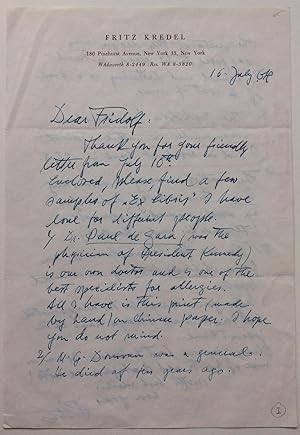 FRITZ KREDEL
180 Pinehurst Avenue, New York 33, New York
WAdsworth 8-2449 (Res. WA 8-3820)
16. July 64
Dear Fridolf.
Thank you for your friendly
letter from July 10th
Enclosed, please, find a few
samples of "Ex Libris" I have
done for different people.
1/ Dr. Paul de Gara, (was the
physician of President Kennedy)
is our own doctor and is one of the
best specialists for allergies.
All I have is this print (made
by hand) on Chinese paper. I hope
you do not mind.
2/ W. G. Donovan was a general.
He died a few years ago.
1